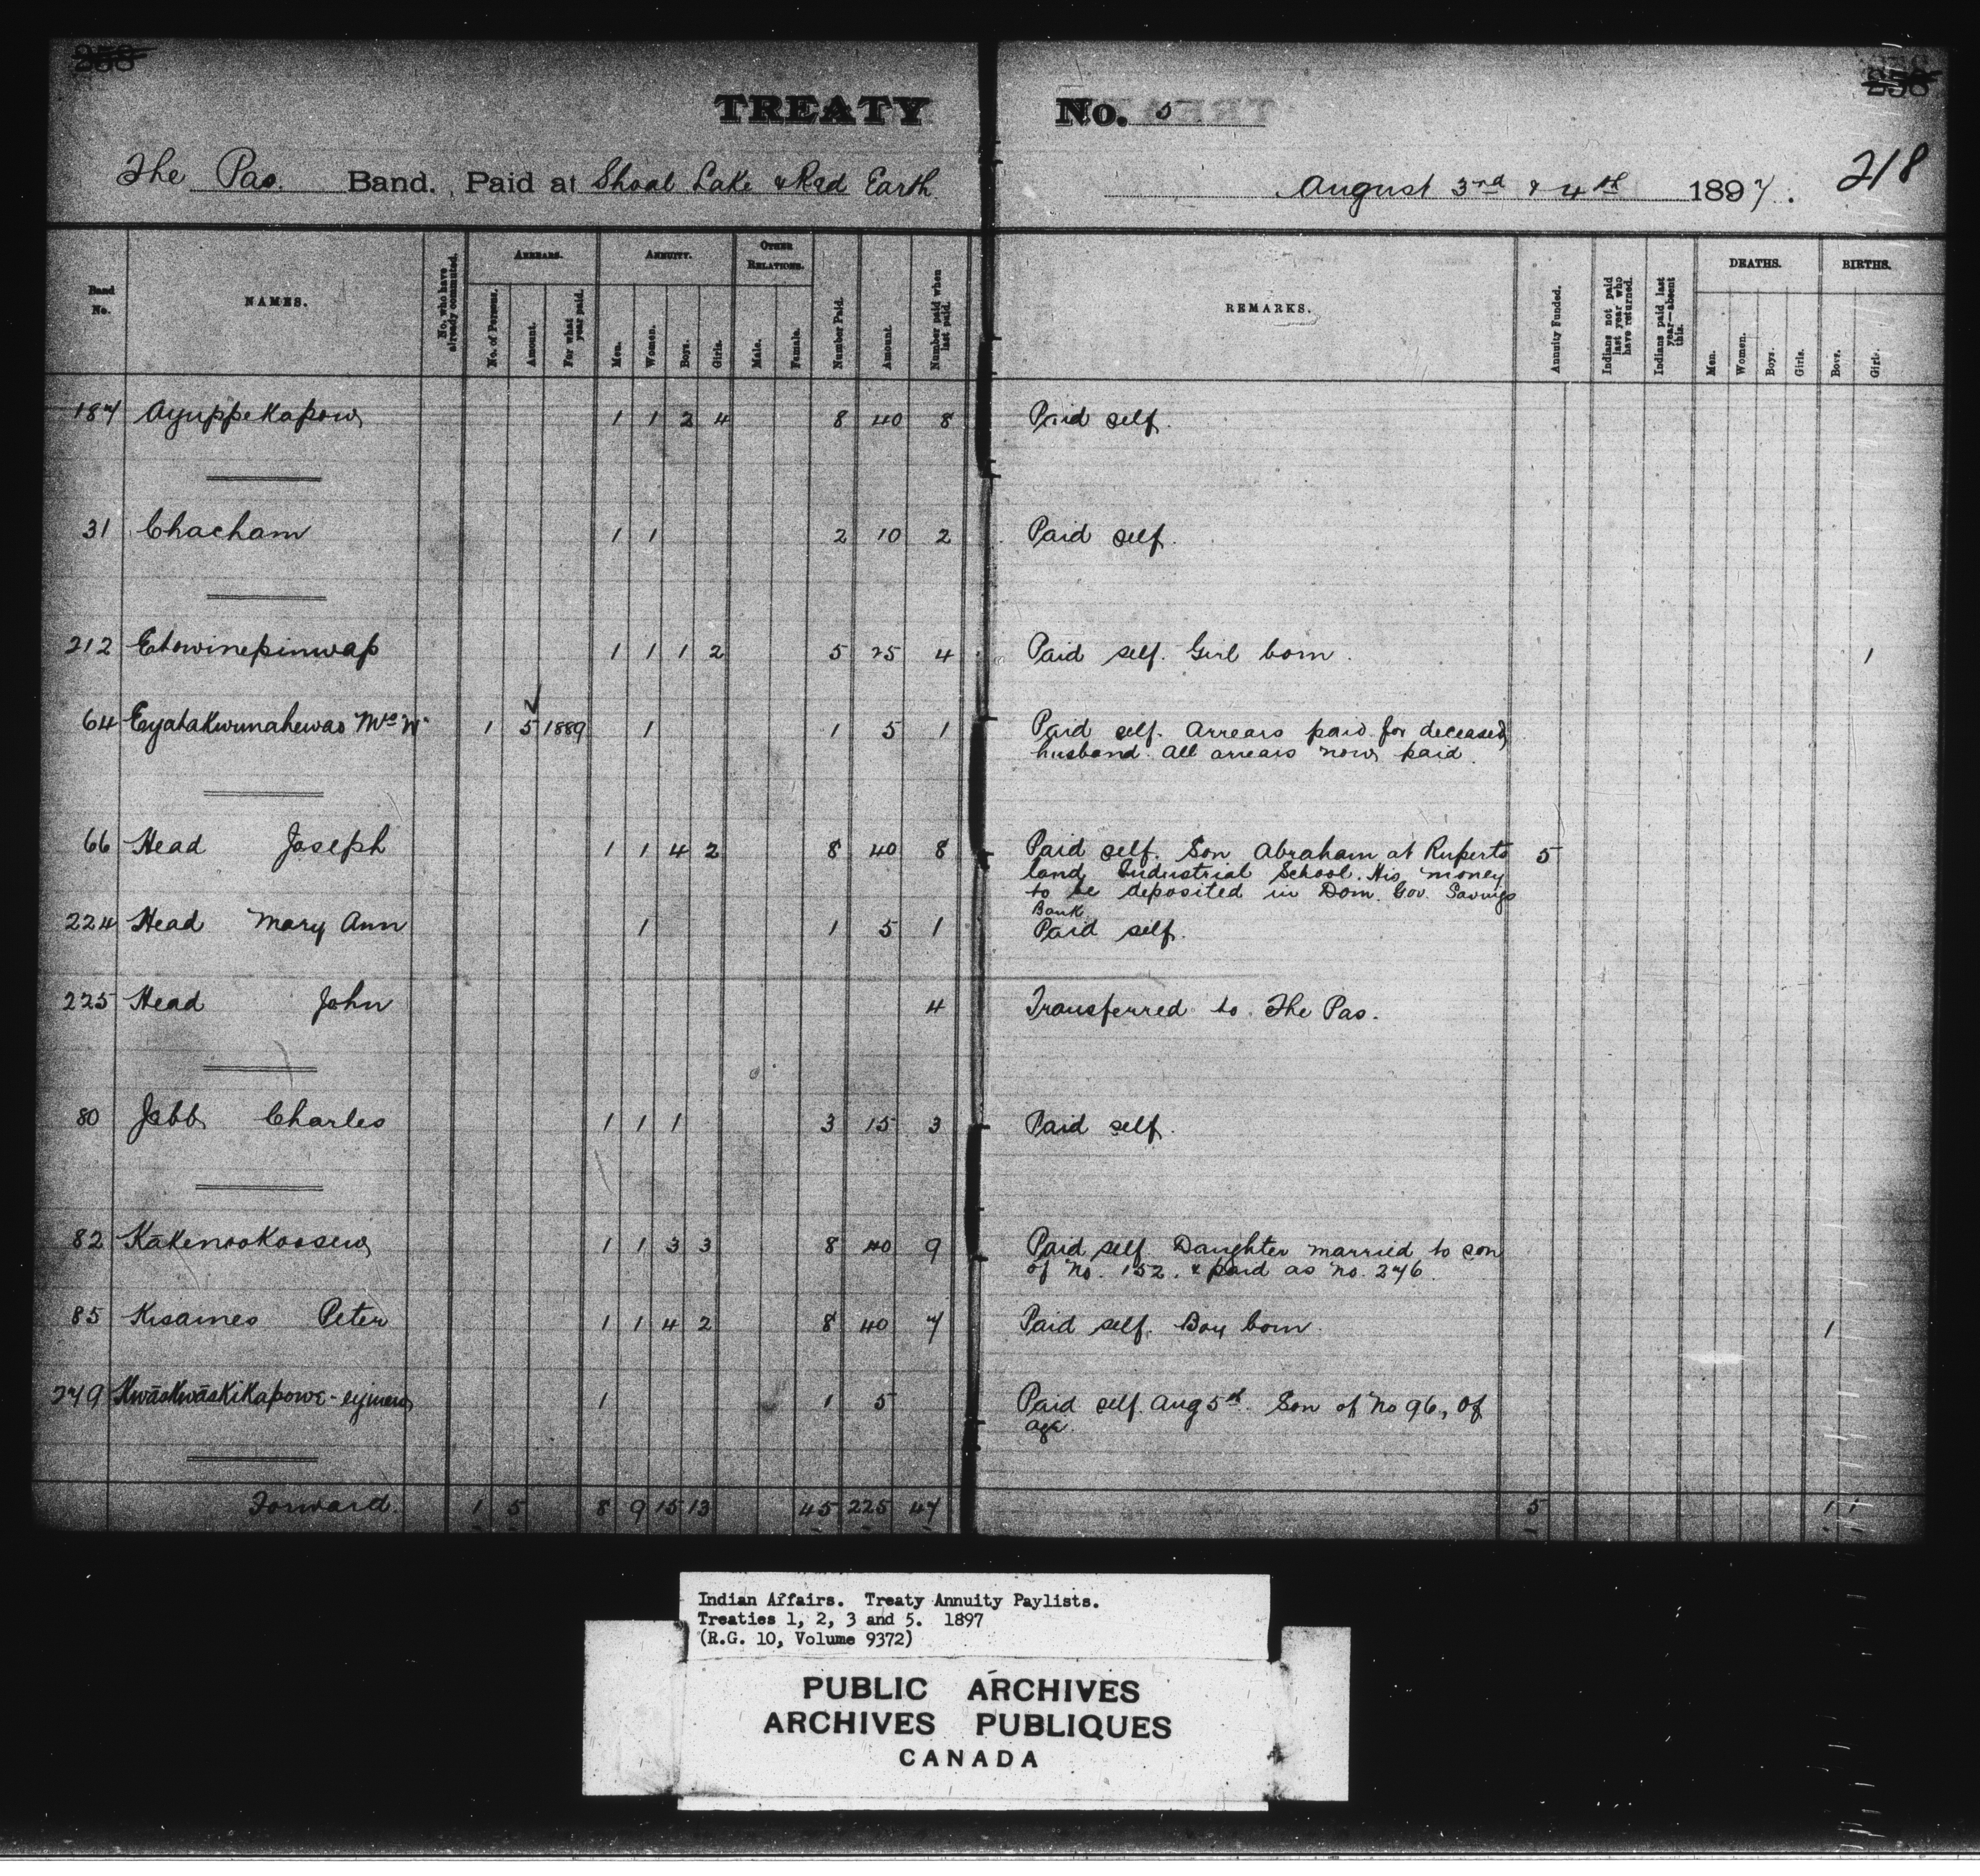 258
258
TREATY No. 5
218
The Pas. Band. Paid at Shoal Lake & Red Earth August 3rd & 4th 1897.
Band No.
NAMES.
No. who have already commuted.
ARREARS.
No. of Persons.
Amount.
For what year paid.
ANNUITY.
Men.
Women.
Boys.
Girls.
OTHER RELATIONS.
Male.
Female.
Number Paid.
Amount.
Number paid when last paid.
REMARKS.
Annuity Funded.
Indians not paid last year who have returned.
Indians paid last year—absent this.
DEATHS.
Men.
Women.
Boys.
Girls.
BIRTHS.
Boys.
Girls.
187 Ayuppekapow 1 1 2 4 8 40 8 Paid self.
31 Chacham 1 1 2 10 2 Paid self.
212 Etowinepinwap 1 1 1 2 5 25 4 Paid self. Girl born. 1
64 Eyatakwunahewas Mrs W 1 5 1889 1 1 5 1 Paid self. Arrears paid for deceased
husband. All arrears now paid.
66 Head Joseph 1 1 4 2 8 40 8 Paid self. Son Abraham at Ruperts 5
land Industrial School. His money
to be deposited in Dom. Gov. Savings
Bank
224 Head Mary Ann 1 1 5 1 Paid self.
225 Head John 4 Transferred to The Pas.
80 Jebb Charles 1 1 1 3 15 3 Paid self.
82 Kākenookoosew 1 1 3 3 8 40 9 Paid self. Daughter married to son
of No. 152. & paid as No. 246.
85 Kisames Peter 1 1 4 2 8 40 7 Paid self. Boy born. 1
249 Kwāskwāskikapowe-eyinew 1 1 5 Paid self. Aug 5th. Son of No 96, of
age.
Forward. 1 5 8 9 15 13 45 225 47 5 1 1
Indian Affairs. Treaty Annuity Paylists.
Treaties 1, 2, 3 and 5. 1897
(R.G. 10, Volume 9372)
PUBLIC ARCHIVES
ARCHIVES PUBLIQUES
CANADA